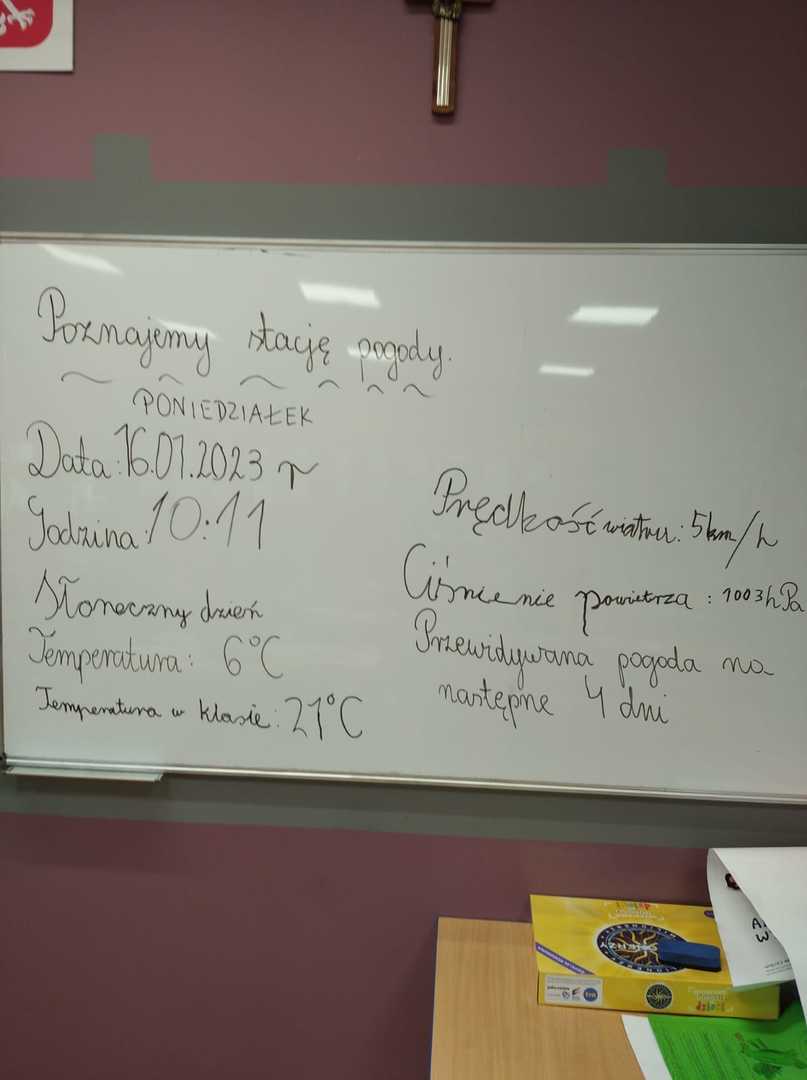 Poznajemy stację pogody.
PONIEDZIAŁEK
Data: 16.01.2023 r
Godzina: 10:11
Słoneczny dzień
Temperatura: 6°C
Temperatura w klasie: 21°C
Prędkość wiatru: 5km/h
Ciśnienie powietrza: 1003hPa
Przewidywana pogoda na
następne 4 dni